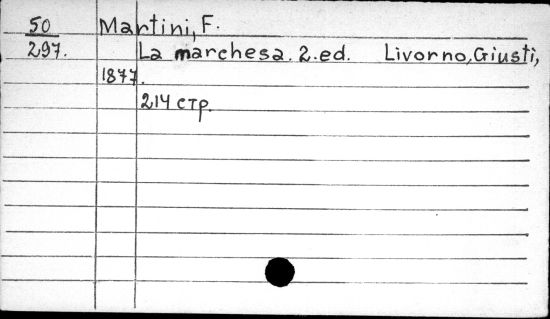 50 Martini, F.
297. La marchesa. 2.ed. Livorno, Giusti,
1877.
214 стр.